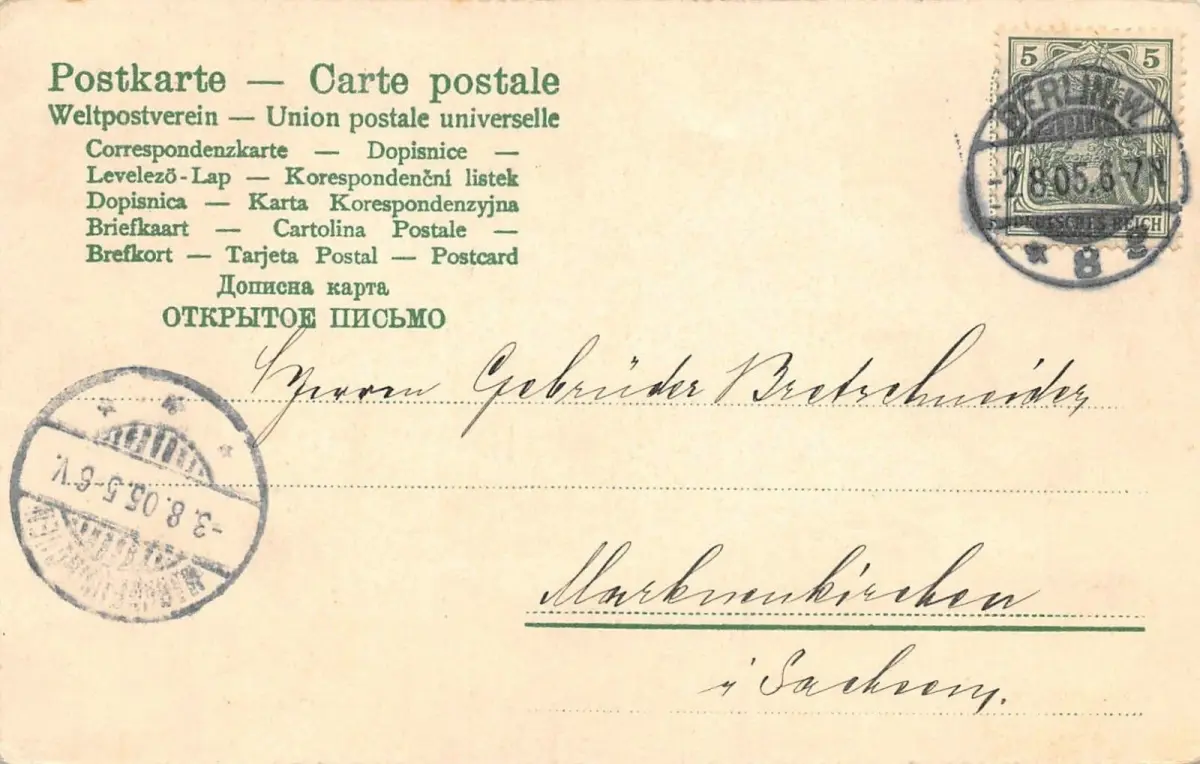 Postkarte — Carte postale
Weltpostverein — Union postale universelle
Correspondenzkarte — Dopisnice —
Levelező-Lap — Korespondenční listek
Dopisnica — Karta Korespondenzyjna
Briefkaart — Cartolina Postale —
Brefkort — Tarjeta Postal — Postcard
Дописна карта
ОТКРЫТОЕ ПИСЬМО
5 5
DEUTSCHES REICH
BERLIN.W
-2.8.05.6-7N
* 8 g
Herren Gebrüder Bretschneider,
-3.8.05.5-6V.
MARKNEUKIRCHEN
Markneukirchen
i Sachsen.